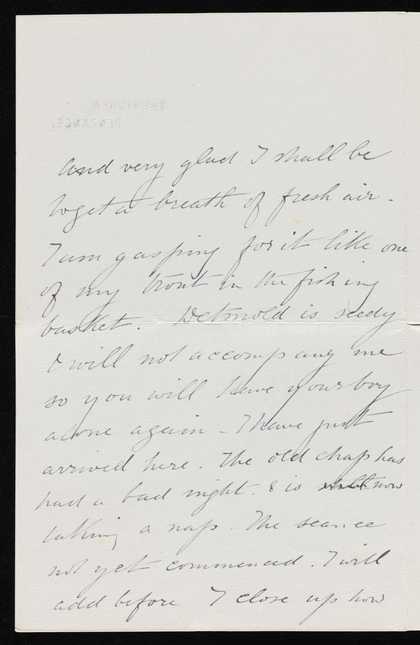 and very glad I shall be
to get a breath of fresh air -
I am gasping for it like one
of my trout in the fishing
basket. Detmold is seedy
& will not accompany me
so you will have your boy
alone again - I have just
arrived here. The old chap has
had a bad night. & is now
taking a nap. The seance
not yet commenced. I will
add before I close up how